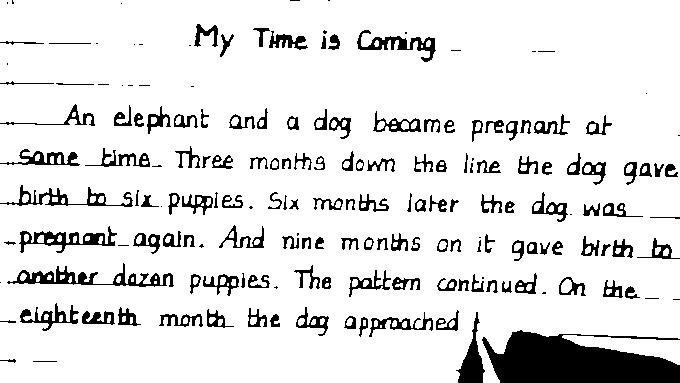 My Time is Coming
An elephant and a dog became pregnant at
same time. Three months down the line the dog gave
birth to six puppies. Six months later the dog was
pregnant again. And nine months on it gave birth to
another dozen puppies. The pattern continued. On the
eighteenth month the dog approached t